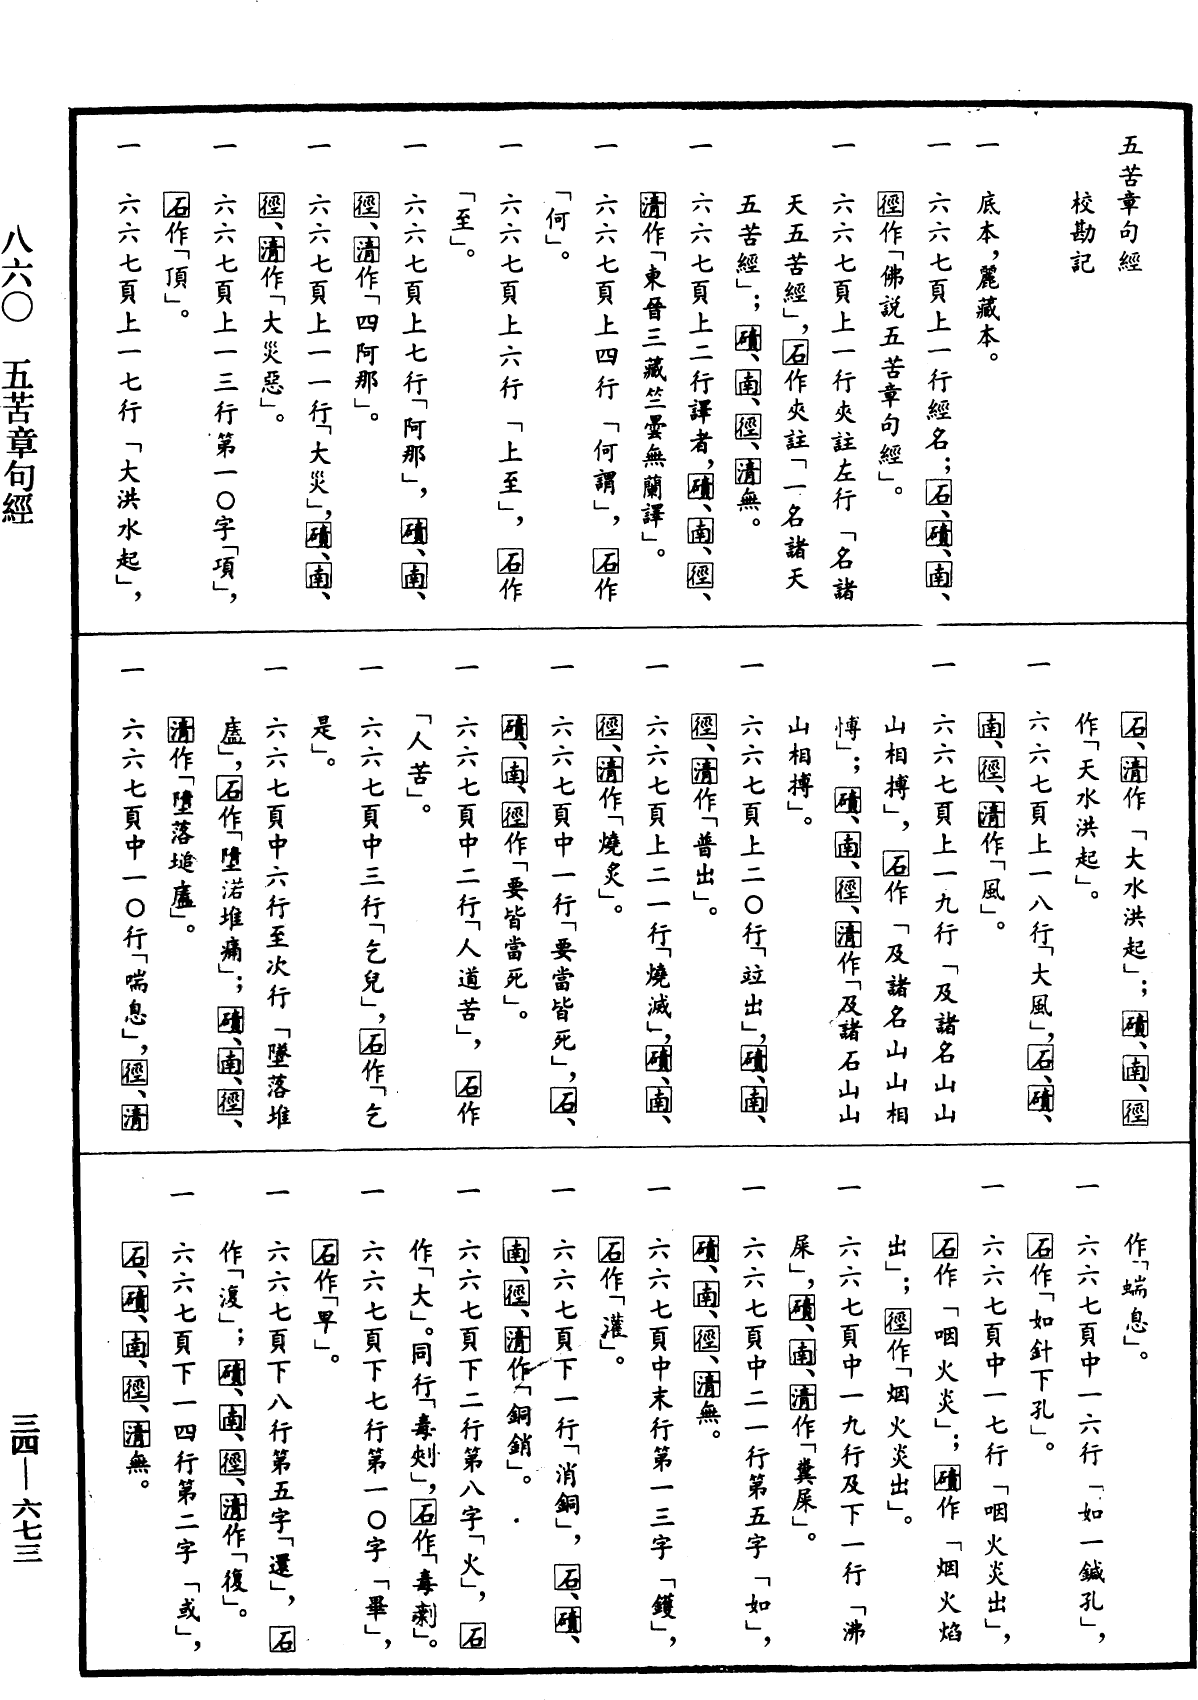 五苦章句經
校勘記
一　底本，麗藏本。
一　六六七頁上一行經名；石、磧、南、
徑作「佛說五苦章句經」。
一　六六七頁上一行夾註左行「名諸
天五苦經」，石作夾註「一名諸天
五苦經」；磧、南、徑、清無。
一　六六七頁上二行譯者，磧、南、徑、
清作「東晉三藏竺曇無蘭譯」。
一　六六七頁上四行「何謂」，石作
「何」。
一　六六七頁上六行「上至」，石作
「至」。
一　六六七頁上七行「阿那」，磧、南、
徑、清作「四阿那」。
一　六六七頁上一一行「大災」，磧、南、
徑、清作「大災惡」。
一　六六七頁上一三行第一〇字「項」，
石作「頂」。
一　六六七頁上一七行「大洪水起」，
石、清作「大水洪起」；磧、南、徑
作「天水洪起」。
一　六六七頁上一八行「大風」，石、磧、
南、徑、清作「風」。
一　六六七頁上一九行「及諸名山山
山相搏」，石作「及諸名山山相
愽」；磧、南、徑、清作「及諸石山山
山相搏」。
一　六六七頁上二〇行「竝出」，磧、南、
徑、清作「普出」。
一　六六七頁上二一行「燒滅」，磧、南、
徑、清作「燒炙」。
一　六六七頁中一行「要當皆死」，石、
磧、南、徑作「要皆當死」。
一　六六七頁中二行「人道苦」，石作
「人苦」。
一　六六七頁中三行「乞兒」，石作「乞
是」。
一　六六七頁中六行至次行「墜落堆
盧」，石作「墮渃堆痛」；磧、南、徑、
清作「墮落塠廬」。
一　六六七頁中一〇行「喘息」，徑、清
作「蝡息」。
一　六六七頁中一六行「如一鍼孔」，
石作「如針下孔」。
一　六六七頁中一七行「咽火炎出」，
石作「咽火炎」；磧作「烟火焰
出」；徑作「烟火炎出」。
一　六六七頁中一九行及下一行「沸
屎」，磧、南、清作「糞屎」。
一　六六七頁中二一行第五字「如」，
磧、南、徑、清無。
一　六六七頁中末行第一三字「鑊」，
石作「灌」。
一　六六七頁下一行「消銅」，石、磧、
南、徑、清作「銅銷」。
一　六六七頁下二行第八字「火」，石
作「大」。同行「毒刾」，石作「毒剌」。
一　六六七頁下七行第一〇字「畢」，
石作「早」。
一　六六七頁下八行第五字「還」，石
作「澓」；磧、南、徑、清作「復」。
一　六六七頁下一四行第二字「或」，
石、磧、南、徑、清無。
八六〇　五苦章句經
三四—六七三